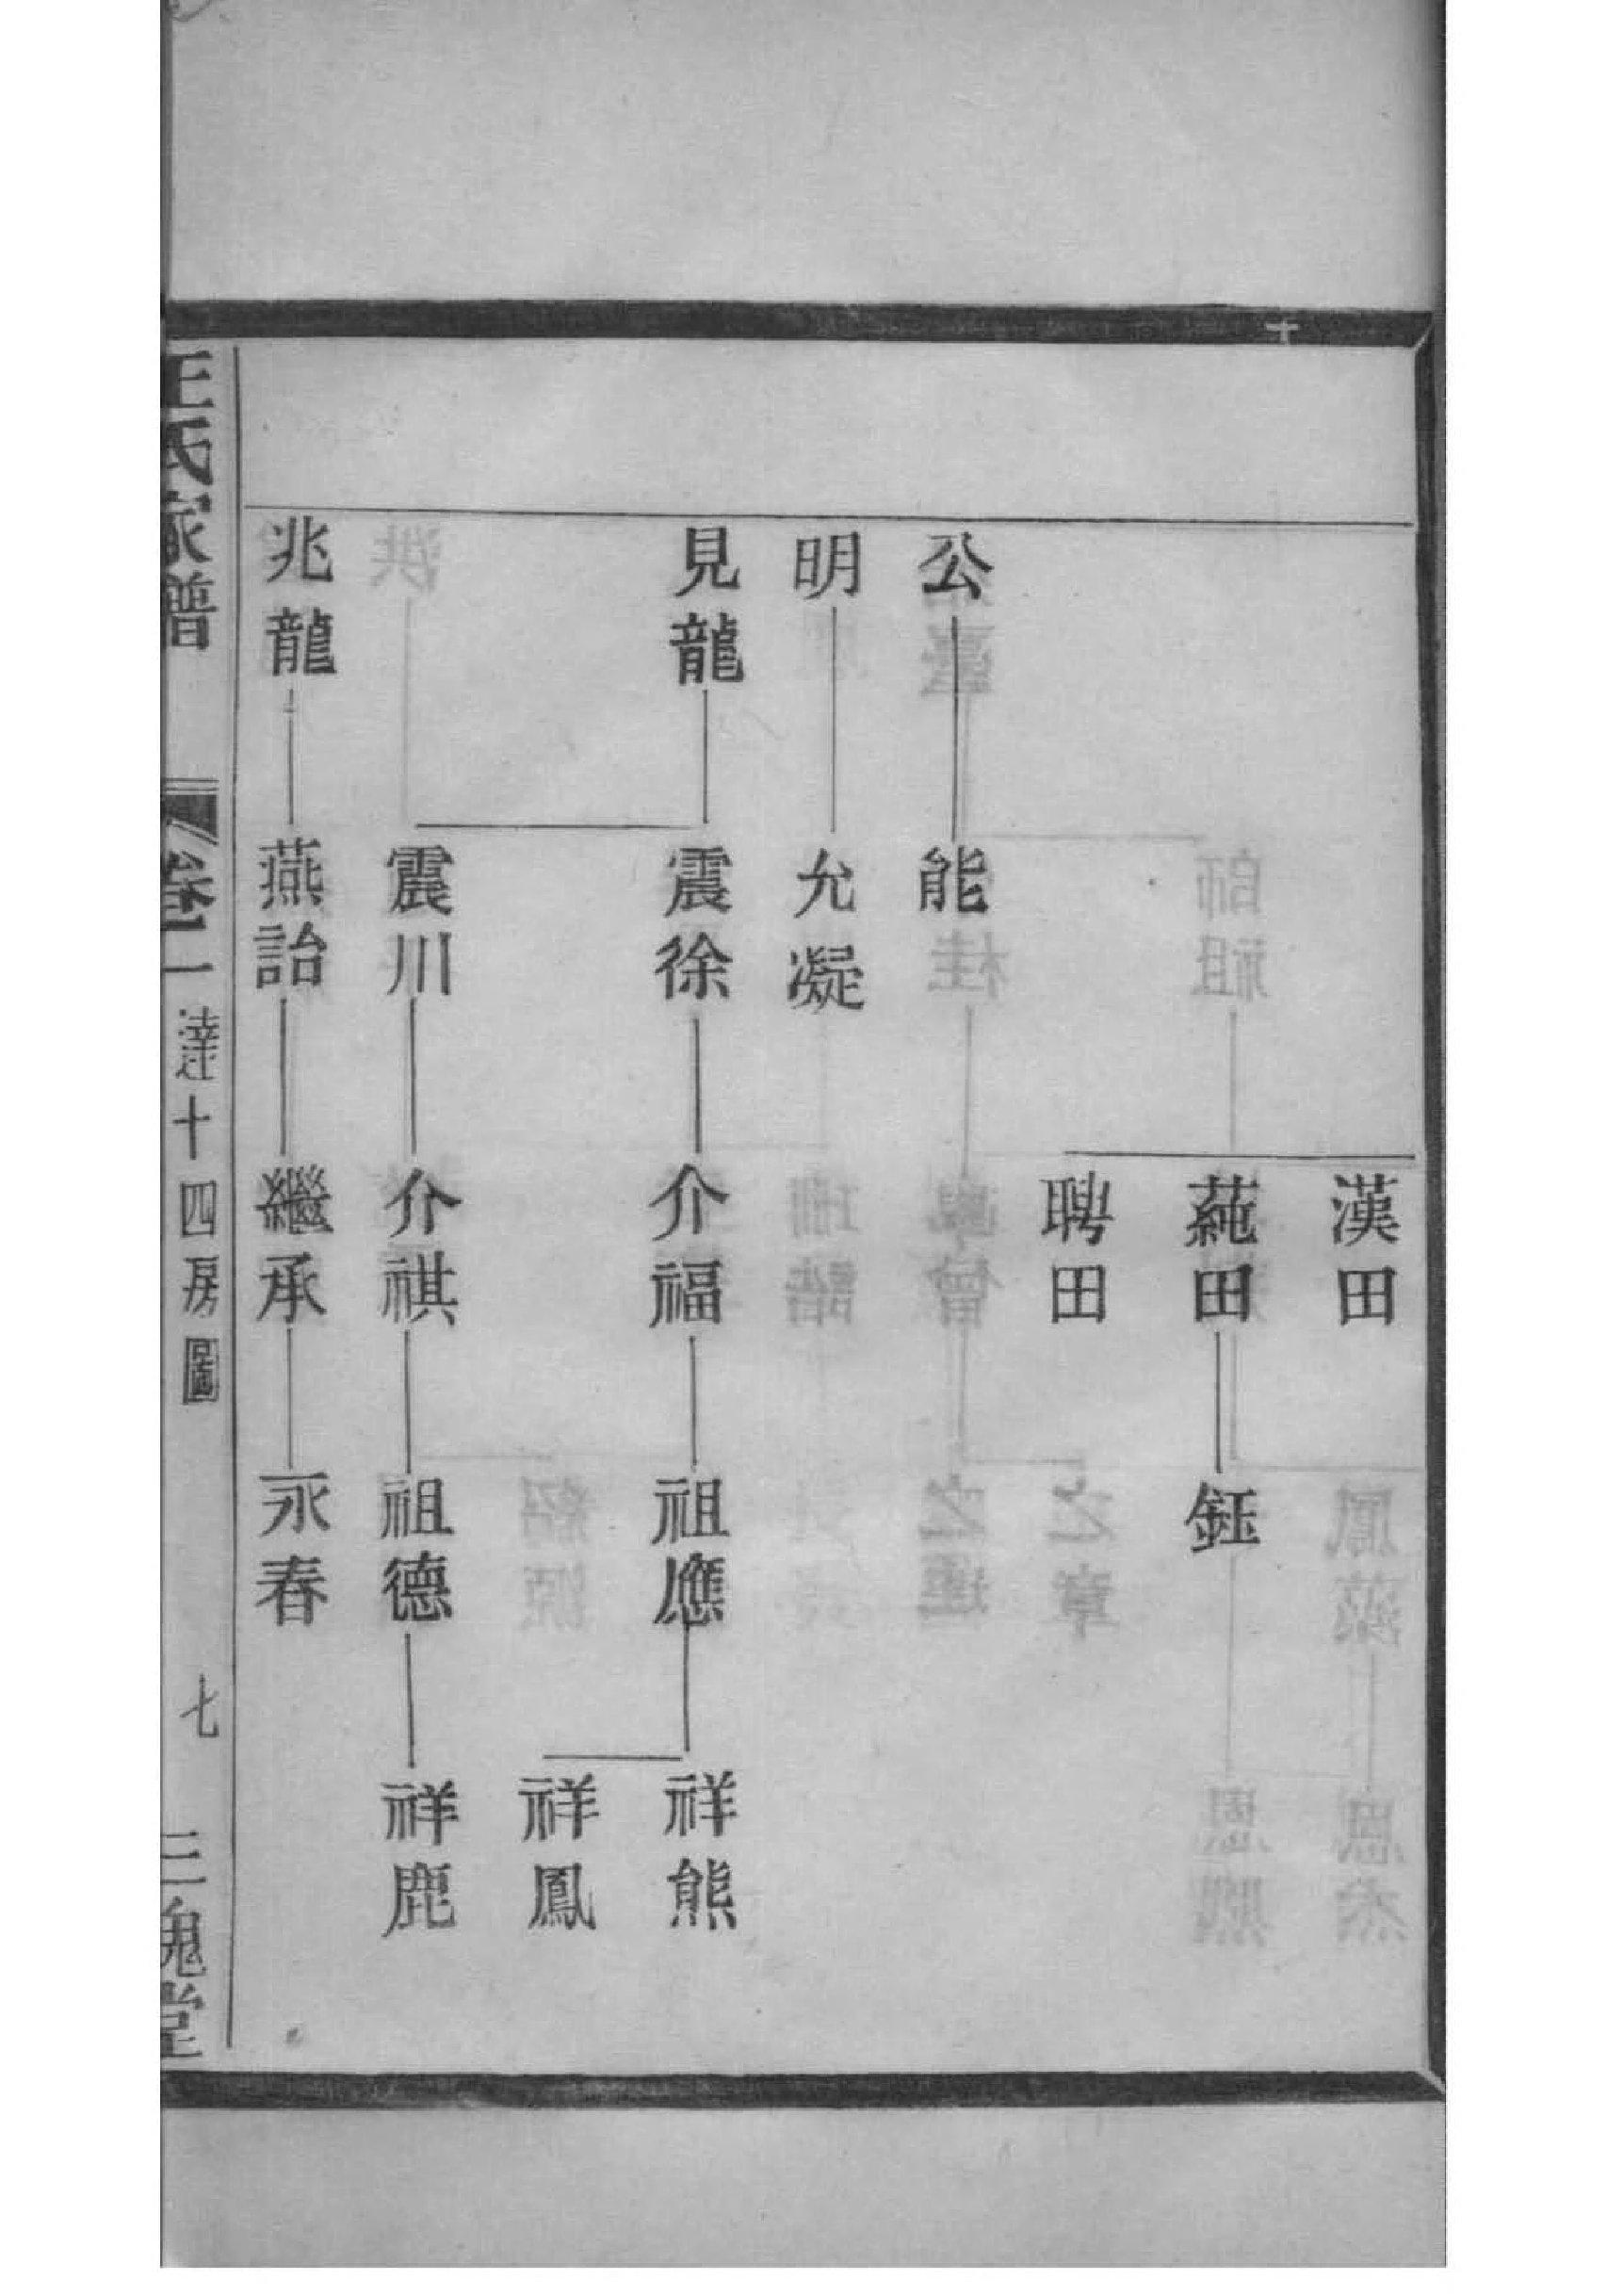 漢田
蒓田
鈺
聘田
公
能
明
允凝
見龍
震徐
介福
祖應
祥熊
祥鳳
震川
介祺
祖德
祥鹿
兆龍
燕詒
繼承
永春
王氏家譜
卷一
達十四房圖
七
三槐堂